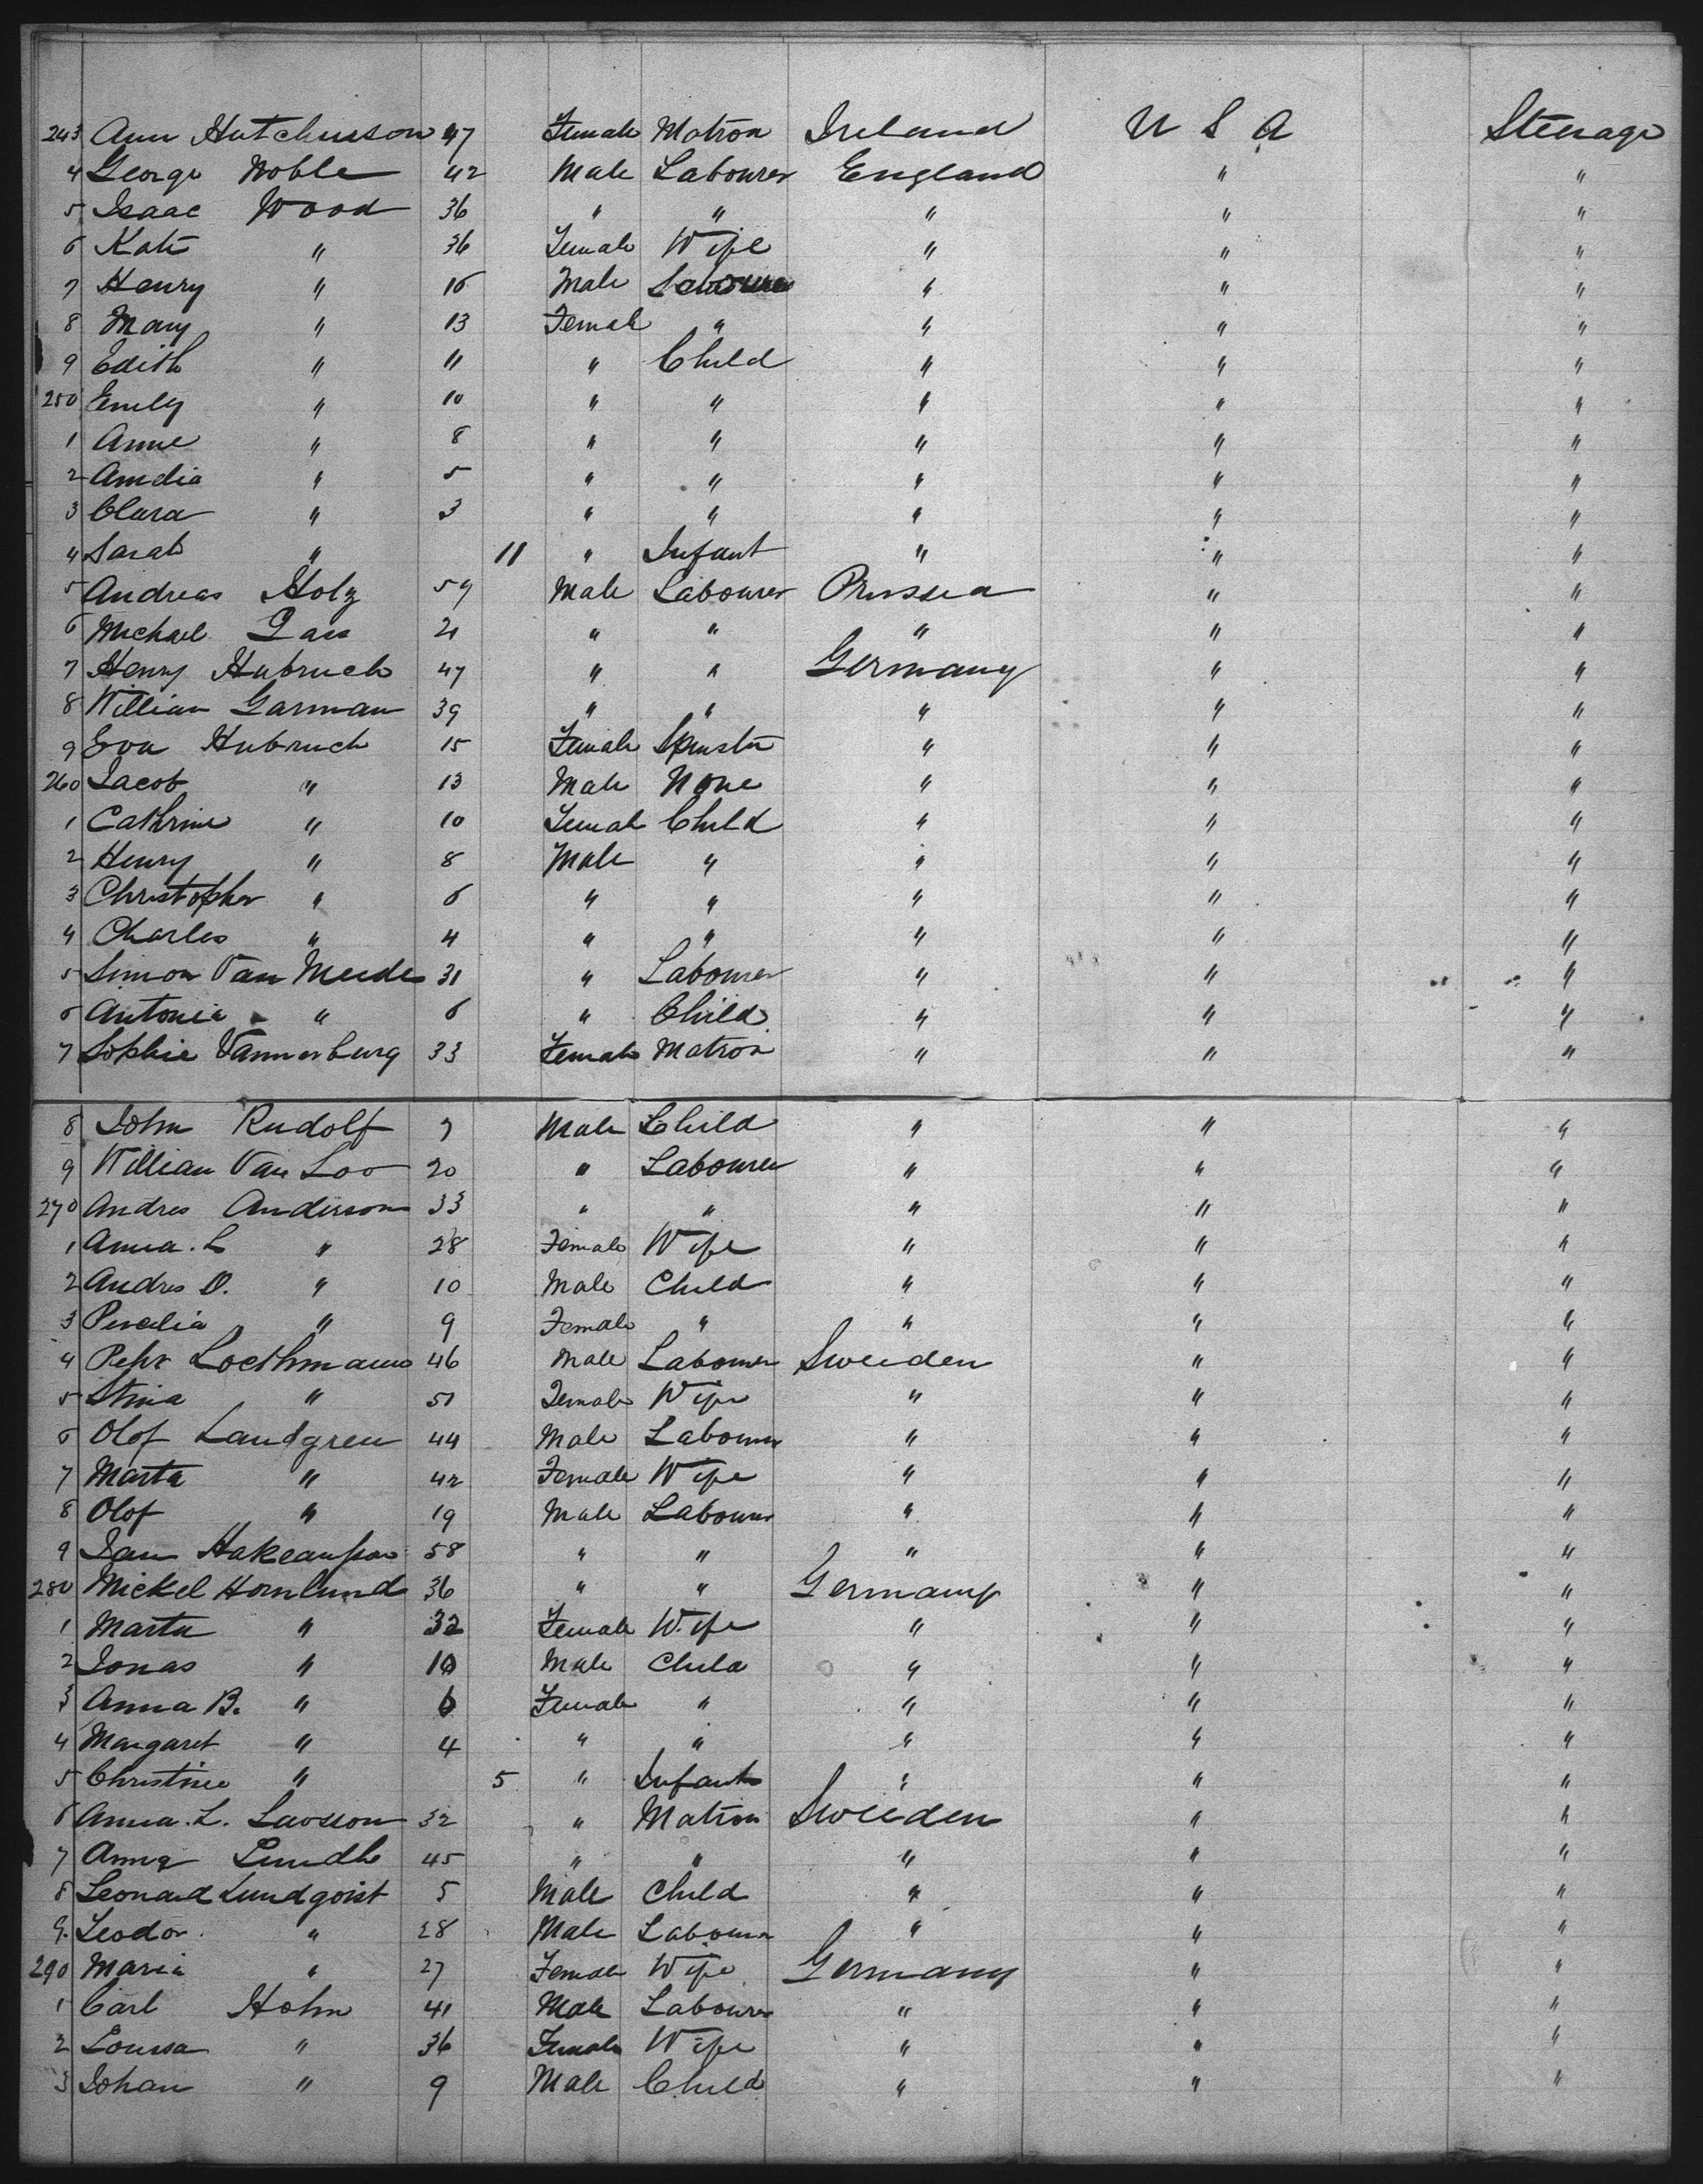 243 Ann Hutchusson 47 Female Matron Ireland U S A Steerage
4 George Noble 42 Male Labourer England " "
5 Isaac Wood 36 " " " " "
6 Kate " 36 Female Wife " " "
7 Henry " 16 Male Labourer " " "
8 Mary " 13 Female " " " "
9 Edith " 11 " Child " " "
250 Emily " 10 " " " " "
1 Anne " 8 " " " " "
2 Amelia " 5 " " " " "
3 Clara " 3 " " " " "
4 Sarah " 11 " Infant " " "
5 Andreas Holz 59 Male Labourer Prussia " "
6 Michael 21 " " " " "
7 Henry Hubruch 47 " " Germany " "
8 William Garman 39 " " " " "
9 Eva Hubruch 15 Female Spinster " " "
260 Jacob " 13 Male None " " "
1 Cathrine " 10 Female Child " " "
2 Henry " 8 Male " " " "
3 Christopher " 6 " " " " "
4 Charles " 4 " " " " "
5 Simon Van Meede 31 " Labourer " " "
6 Antonia " 6 " Child " " "
7 Sophie Vannerburg 33 Female Matron " " "
8 John Rudolf 7 Male Child " " "
9 William Van Loo 20 " Labourer " " "
270 Andres Anderson 33 " " " " "
1 Anna. L " 28 Female Wife " " "
2 Andres O. " 10 Male Child " " "
3 " 9 Female " " " "
4 Pehr Loethmann 46 Male Labourer Sweeden " "
5 Stina " 51 Female Wife " " "
6 Olof Landgren 44 Male Labourer " " "
7 Marta " 42 Female Wife " " "
8 Olof " 19 Male Labourer " " "
9 Jan Hakeanson 58 " " " " "
280 Mickel Hornlund 36 " " Germany " "
1 Marta " 32 Female Wife " " "
2 Jonas " 10 Male Child " " "
3 Anna B. " 6 Female " " " "
4 Margaret " 4 " " " " "
5 Christine " 5 " Infant " " "
6 Anna. L. Lawson 32 " Matron Sweeden " "
7 Anna Lundh 45 " " " " "
8 Leonard Lundqoist 5 Male Child " " "
9. Teodor. " 28 Male Labourer " " "
290 Maria " 27 Female Wife Germany " "
1 Carl Holm 41 Male Labourer " " "
2 Louisa " 36 Female Wife " " "
3 Johan " 9 Male Child " " "